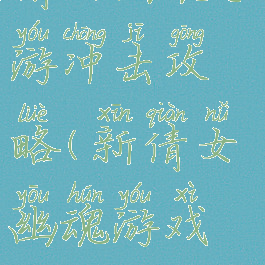 yóu chōng jī gōng
游冲击攻
lüè xīn qiàn nǚ
略(新倩女
yōu hún yóu xì
幽魂游戏